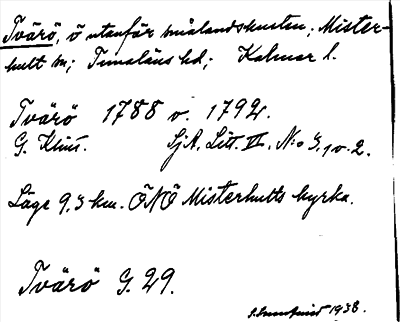 Tvärö, ö utanför smålandskusten; Mister-
hult sn; Tunaläns hd; Kalmar l.
Tvärö 1788 o. 1792.
G. Klint. SjA. Litt. II. N:o 3, 1 o. 2.
Läge 9,3 km. ÖNÖ Misterhults kyrka.
Tvärö G. 29.
1938.